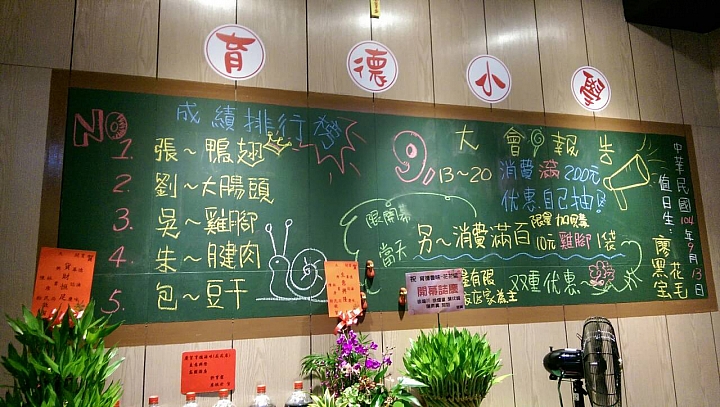 育德小學
成績排行榜
NO
1. 張~鴨翅
2. 劉~大腸頭
3. 吳~雞腳
4. 朱~腱肉
5. 包~豆干
大會報告
9/13~20 消費滿200元
優惠自己抽!
限開幕
當天
另~消費滿百
限量加購
10元雞腳1袋
雙重優惠~
中華民國104年9月13日
值日生:
廖黑宝
花毛
開幕誌慶